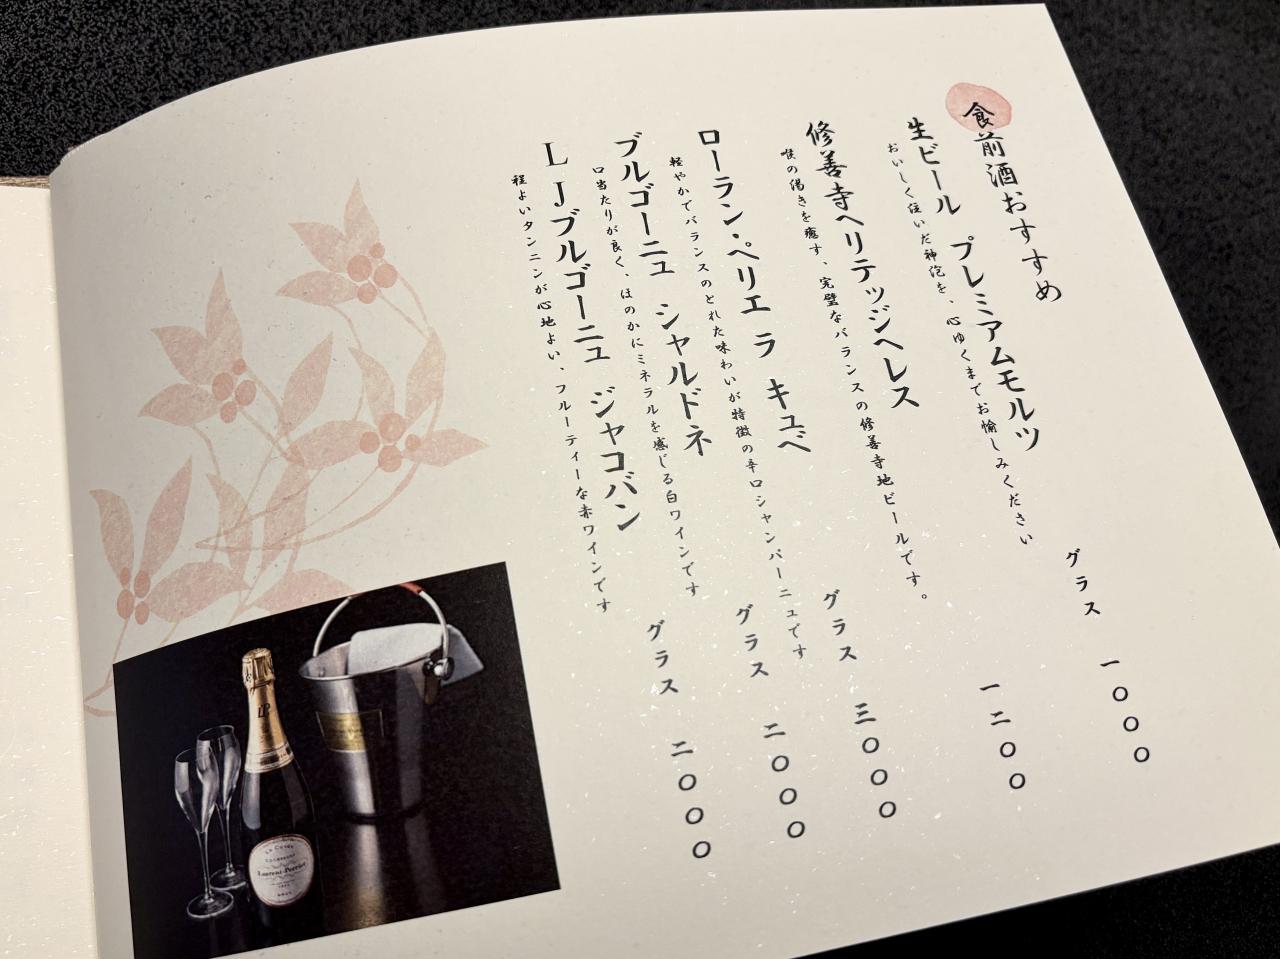 食前酒おすすめ
生ビール プレミアムモルツ
グラス 一〇〇〇
おいしく注いだ神泡を、心ゆくまでお愉しみください
修善寺ヘリテッジヘレス
一二〇〇
喉の渇きを癒す、完璧なバランスの修善寺地ビールです。
ローラン・ペリエ ラ キュベ
グラス 三〇〇〇
軽やかでバランスのとれた味わいが特徴の辛口シャンパーニュです
ブルゴーニュ シャルドネ
グラス 二〇〇〇
口当たりが良く、ほのかにミネラルを感じる白ワインです
LJブルゴーニュ ジャコバン
グラス 二〇〇〇
程よいタンニンが心地よい、フルーティーな赤ワインです
LP
LA CUVÉE
CHAMPAGNE
Laurent-Perrier
BRUT